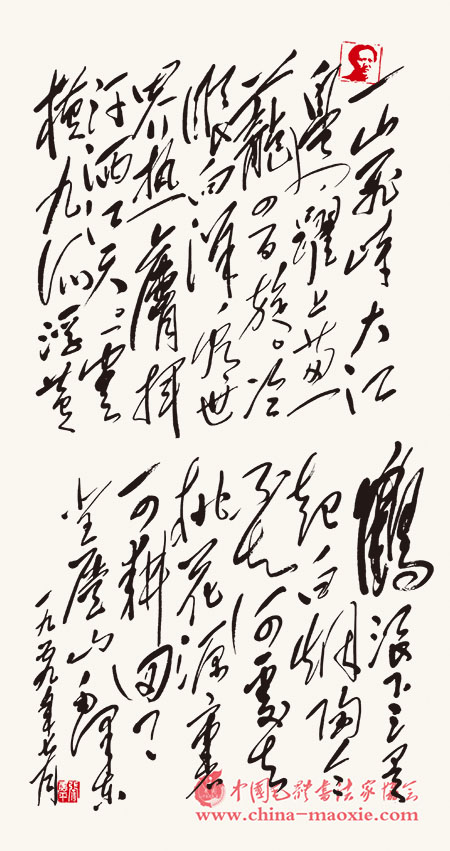 一山飛峙大江
邊,躍上葱
蘢四百旋。冷
眼向洋看世
界,热膚揮
汗洒江天。雲
横九派浮黄
鶴浪下三吴
起白烟陶令
不知何處去
桃花源裏
可耕田
登廬山 毛澤东
一九五九年七月
中國毛體書法家協会
www.china-maoxie.com